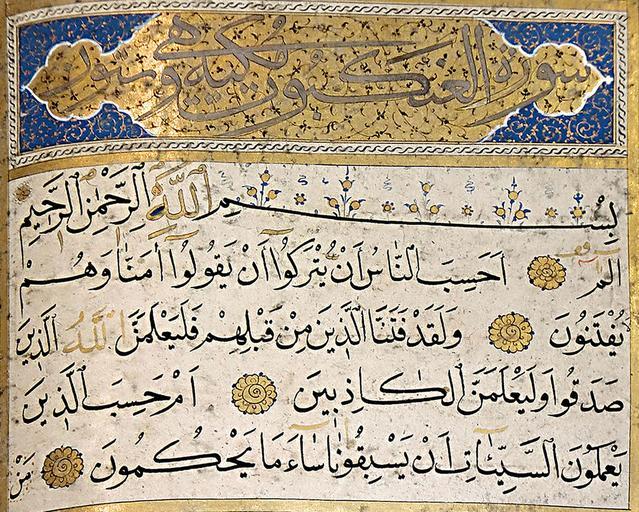 سورة العنكبوت مكية وهى ستون
بِسْمِ اللَّهِ الرَّحْمٰنِ الرَّحِيمِ
الم اَحَسِبَ النَّاسُ اَنْ يُتْرَكُوا اَنْ يَقُولُوا اٰمَنَّا وَهُمْ
يُفْتَنُونَ وَلَقَدْ فَتَنَّا الَّذِينَ مِنْ قَبْلِهِمْ فَلَيَعْلَمَنَّ اللَّهُ الَّذِينَ
صَدَقُوا وَلَيَعْلَمَنَّ الْكَاذِبِينَ اَمْ حَسِبَ الَّذِينَ
يَعْمَلُونَ السَّيِّئَاتِ اَنْ يَسْبِقُونَا سَاءَ مَا يَحْكُمُونَ مَنْ